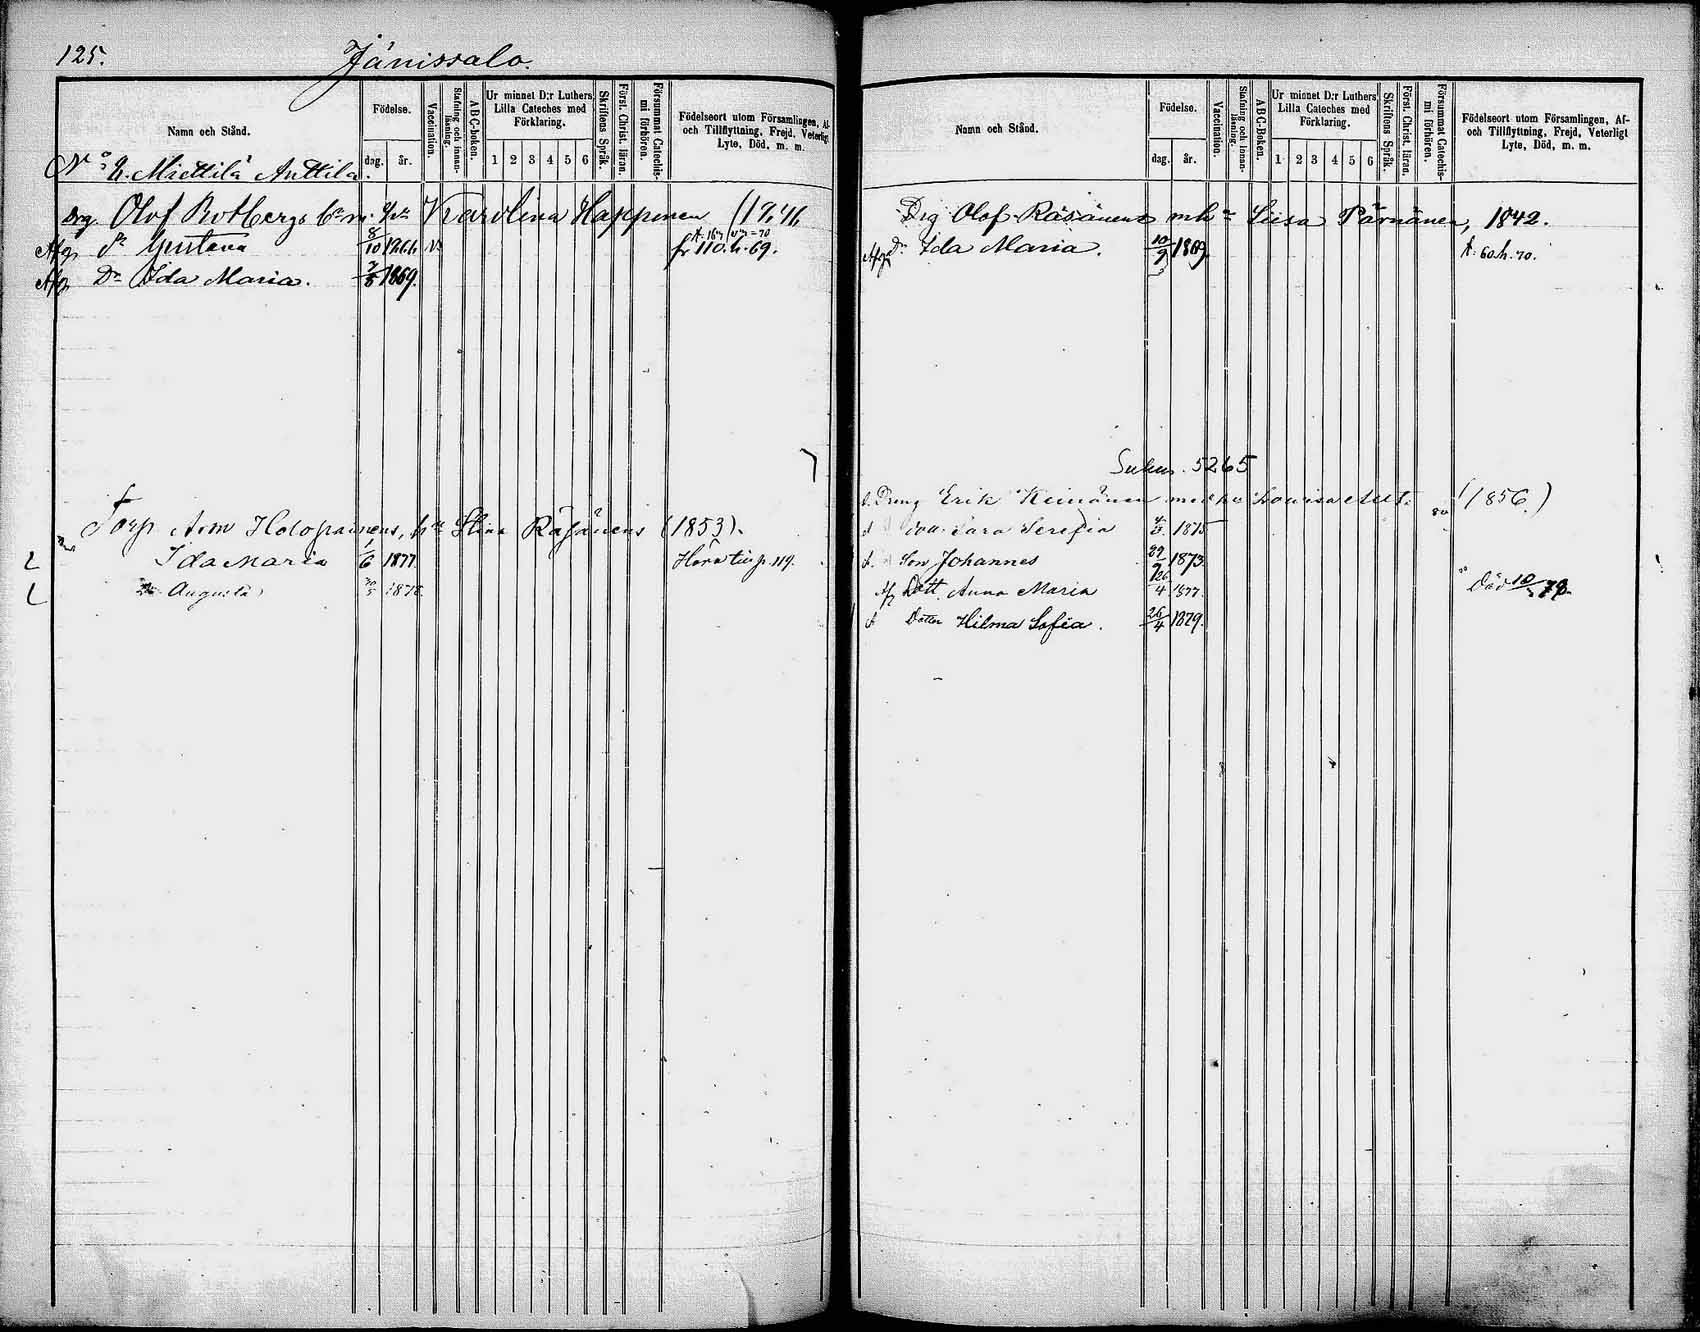 125.
Jänissalo.
Namn och Stånd.
Födelse.
dag.
år.
Vaccination.
Stafning och innan-
läsning.
ABC-boken.
Ur minnet D:r Luthers
Lilla Cateches med
Förklaring.
1 2 3 4 5 6
Skriftens Språk.
Först. Christ. läran.
Försummat Catechis-
mi förhören.
Födelseort utom Församlingen, Af-
och Tillflyttning, Frejd, Veterligt
Lyte, Död, m. m.
No 2. Miettilä Anttila.
Drg. Olof Rotbergs Karolina Happonen
Afg. Sn Gustava 8/10 1866 v. fr 110. h. 69.
Afg. Dr Ida Maria. 1869.
Torp Holopainens, hu Stina Räsänens (1853).
Ida Maria 1/6 1877. Höra till p. 119.
Augusta 1878
Namn och Stånd.
Födelse.
dag.
år.
Vaccination.
Stafning och innan-
läsning.
ABC-Boken.
Ur minnet D:r Luthers
Lilla Cateches med
Förklaring.
1 2 3 4 5 6
Skriftens Språk.
Först. Christ. läran.
Försummat Catechis-
mi förhören.
Födelseort utom Församlingen, Af-
och Tillflyttning, Frejd, Veterligt
Lyte, Död, m. m.
Drg Olof Räsänens mh Liisa Pärnänen, 1842.
Afg. Dr Ida Maria. 10/9 1869. 60. h. 70.
5265
Dräng Erik Keinänen med hu Lovisa (1856.)
Sara Serefia 1875
Son Johannes 29/9 1873
Afg Dott. Anna Maria 26/4 1877. Död
Dotter Hilma Sofia. 26/4 1879.